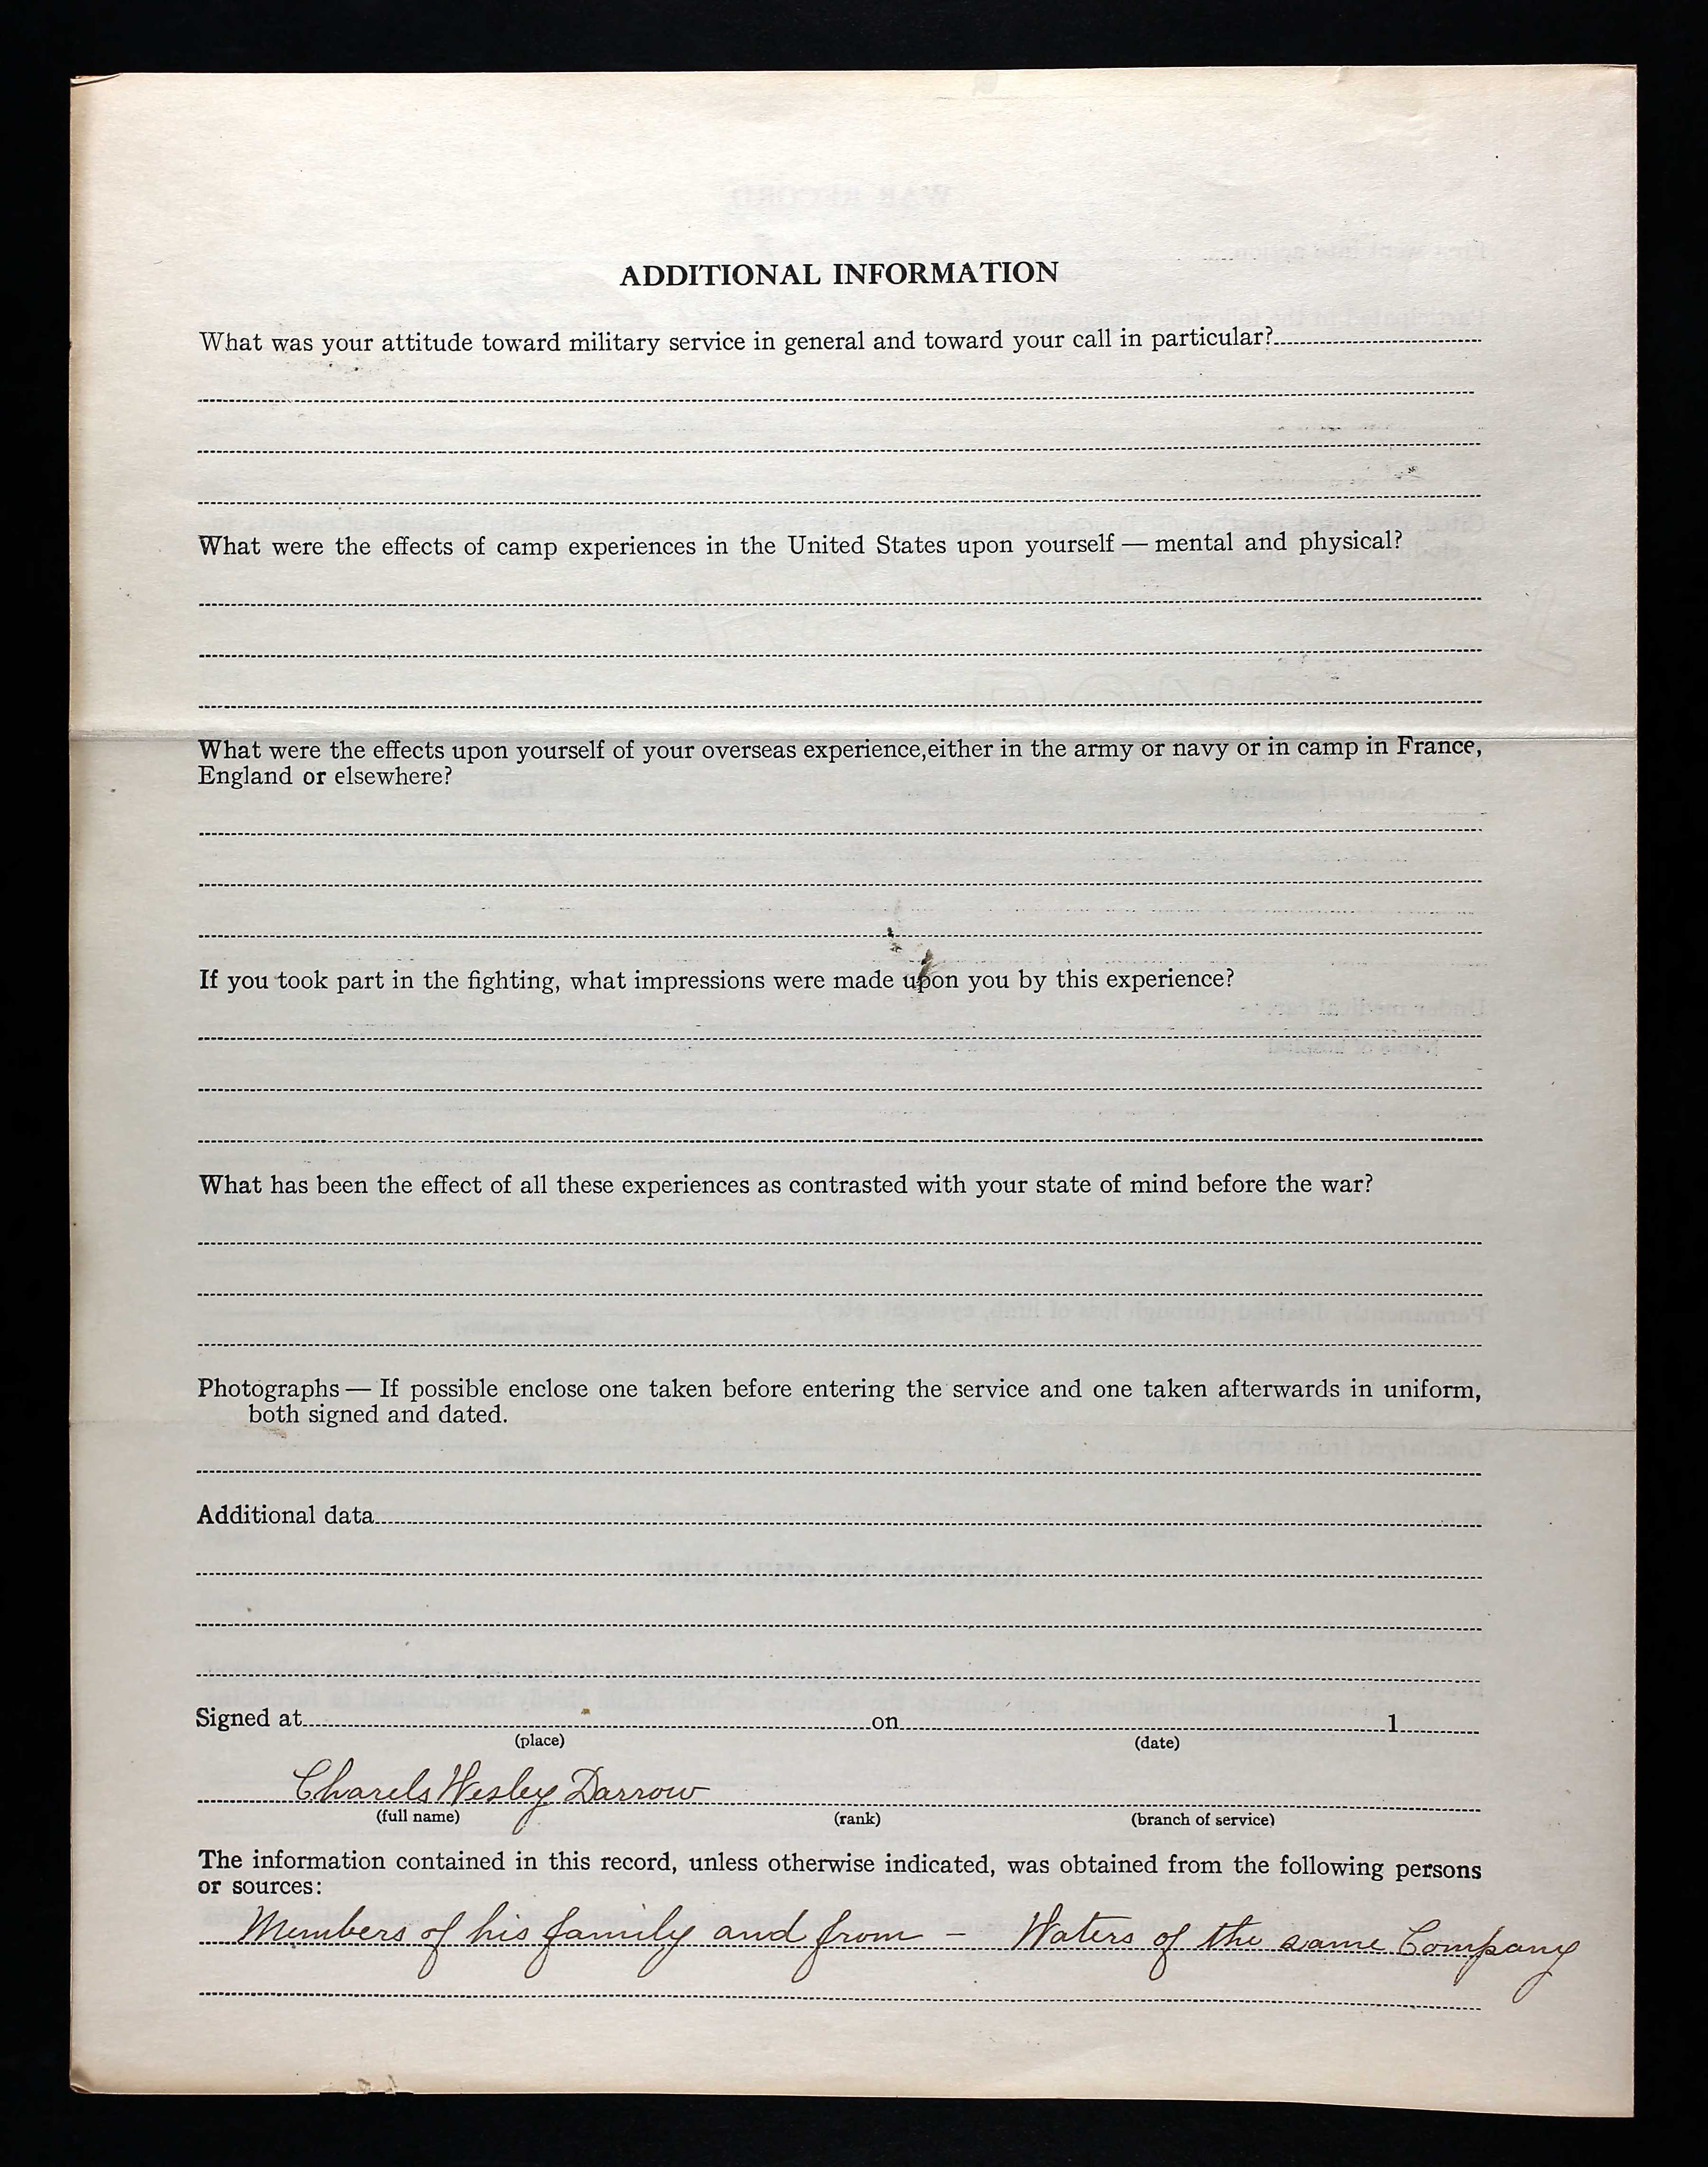 ADDITIONAL INFORMATION
What was your attitude toward military service in general and toward your call in particular?
What were the effects of camp experiences in the United States upon yourself — mental and physical?
What were the effects upon yourself of your overseas experience, either in the army or navy or in camp in France,
England or elsewhere?
If you took part in the fighting, what impressions were made upon you by this experience?
What has been the effect of all these experiences as contrasted with your state of mind before the war?
Photographs — If possible enclose one taken before entering the service and one taken afterwards in uniform,
both signed and dated.
Additional data
Signed at on 1
(place) (date)
Charels Wesley Darrow
(full name) (rank) (branch of service)
The information contained in this record, unless otherwise indicated, was obtained from the following persons
or sources:
Members of his family and from – Waters of the same Company